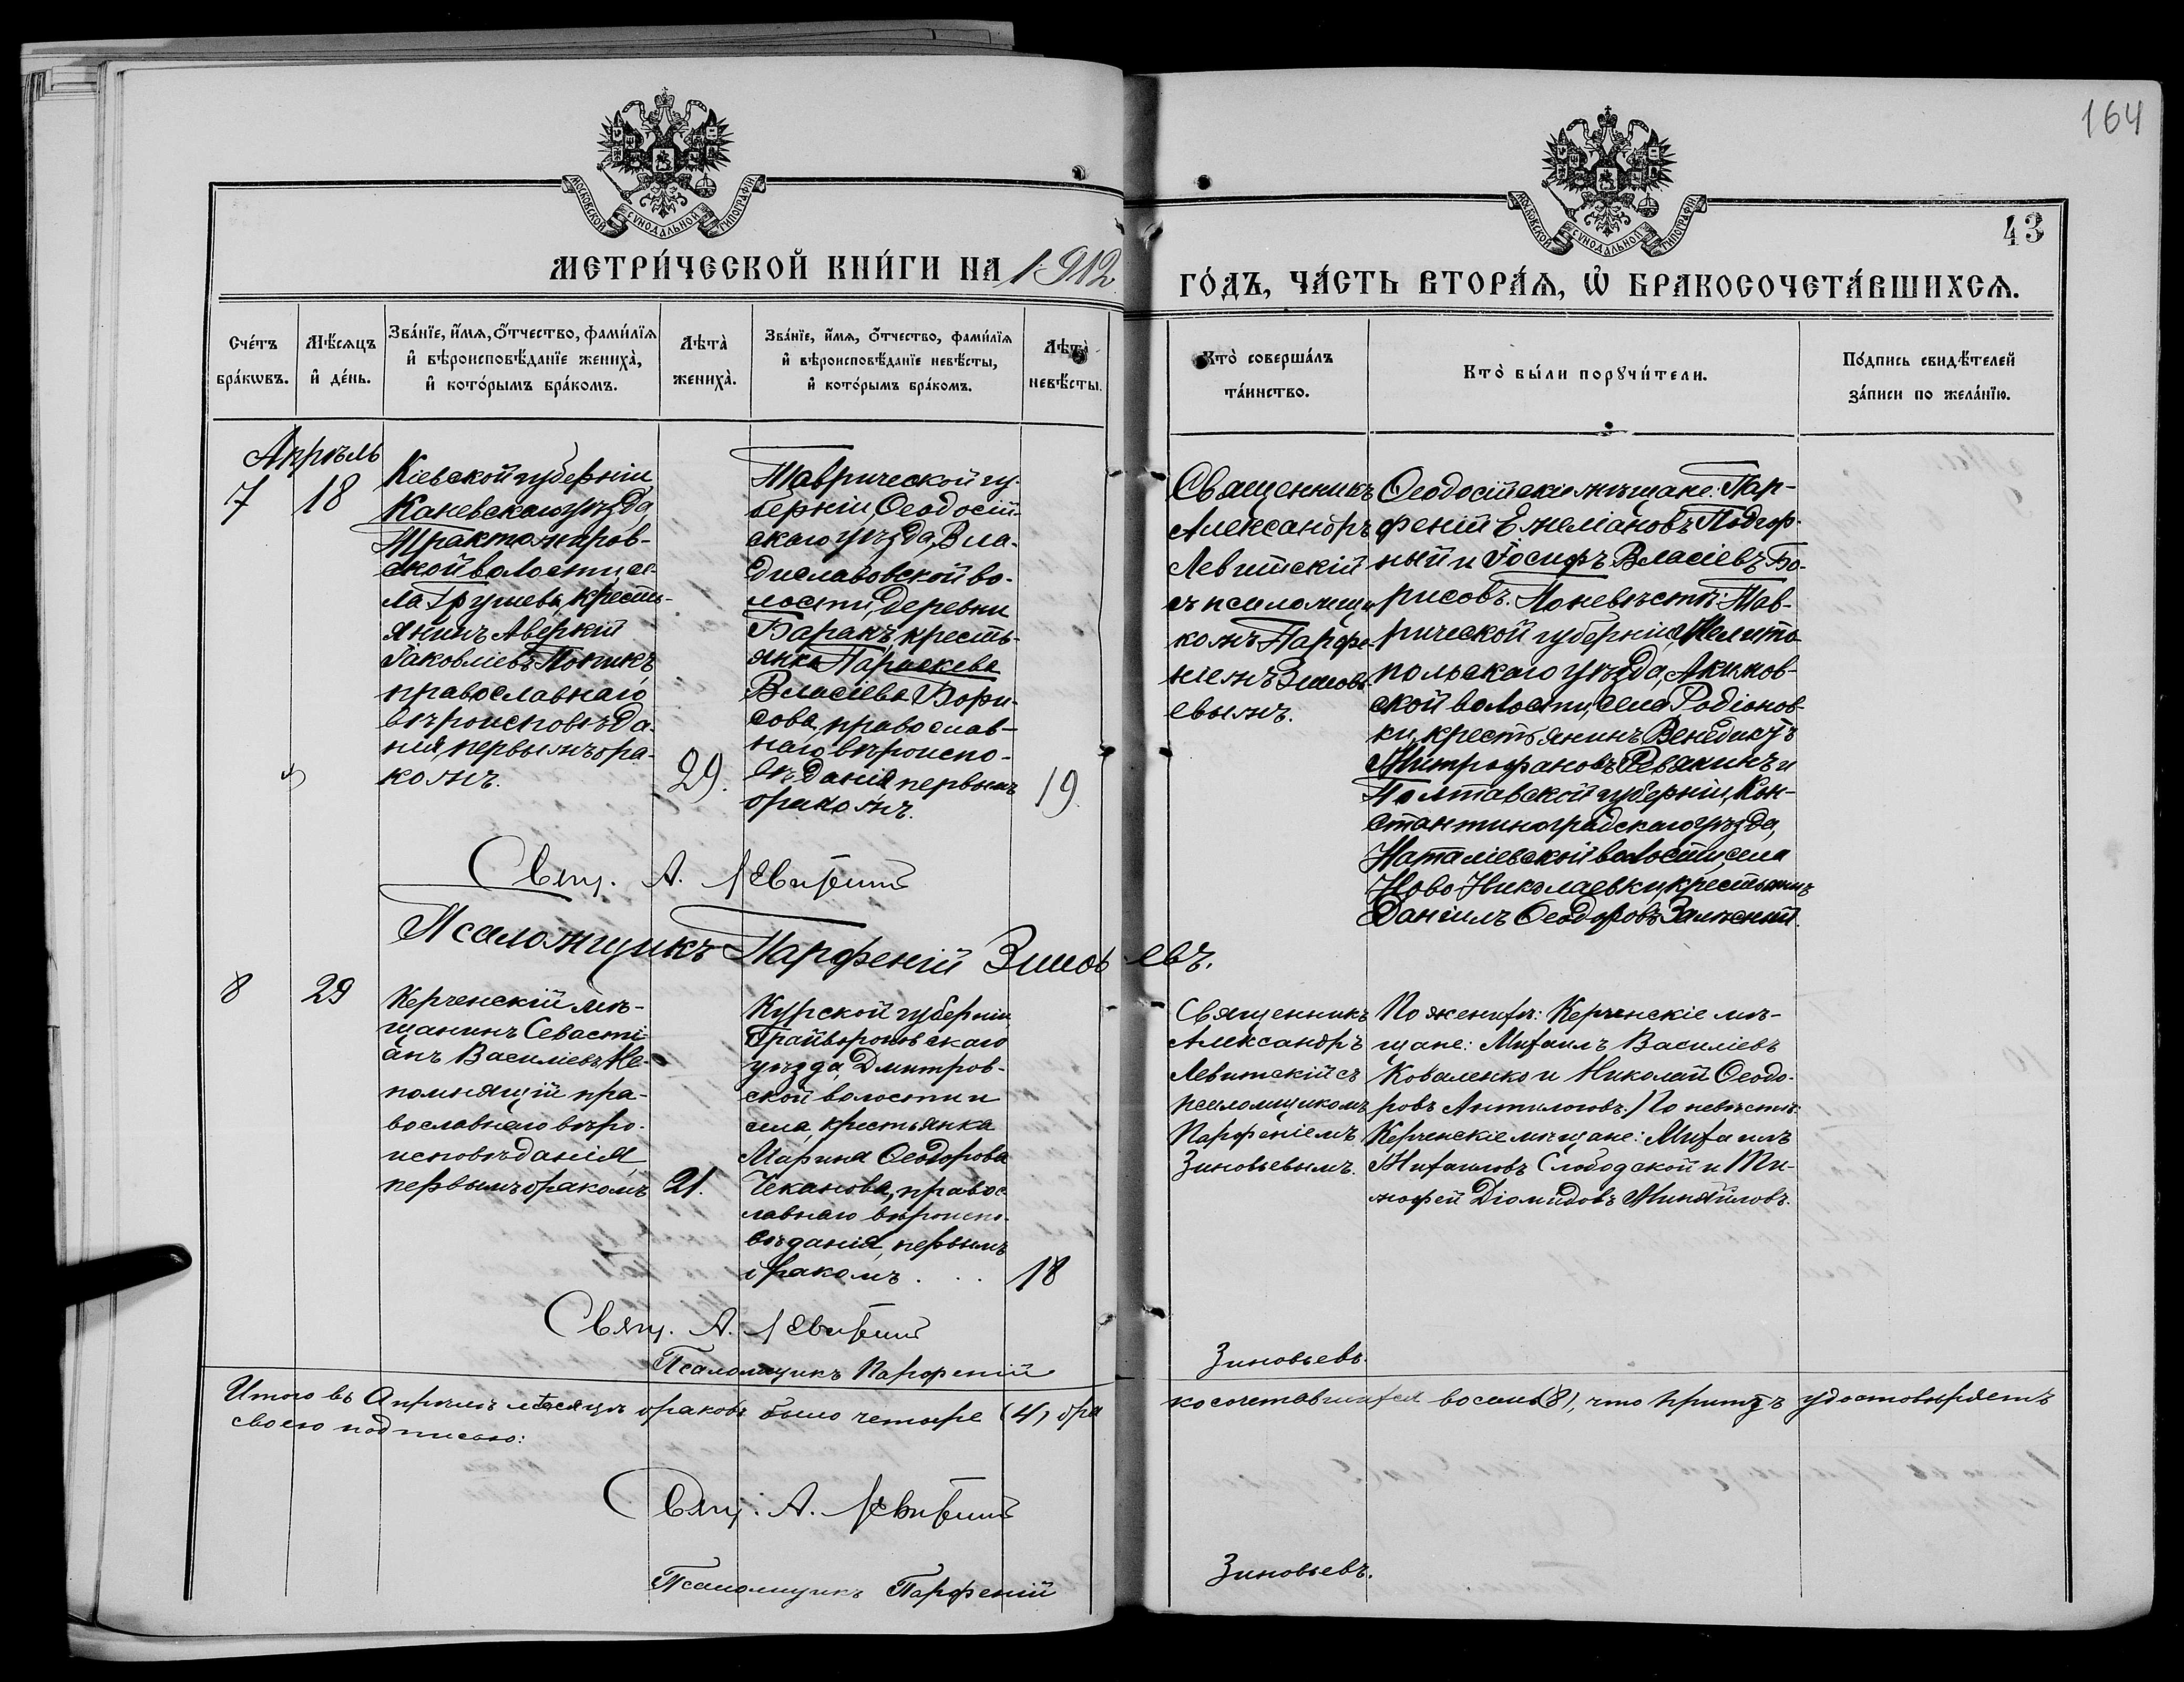 164
МОСКОВСКОЙ СѴНОДАЛЬНОЙ ТИПОГРАФІИ
МОСКОВСКОЙ СѴНОДАЛЬНОЙ ТИПОГРАФІИ
43
МЕТРИ́ЧЕСКОЙ КНИ́ГИ НА 1912
ГО́ДЪ, ЧА́СТЬ ВТОРА́Ѧ, Ѡ҆ БРАКОСОЧЕТА́ВШИХСѦ.
Сче́тъ
бра́кѡвъ.
Мѣ́сяцъ
и҆ де́нь.
Зва́нїе, и҆́мя, ѻ҆́тчество, фами́лїя
и҆ вѣроисповѣ́данїе жениха̀,
и҆ кото́рымъ бра́комъ.
Лѣта̀
жениха̀.
Зва́нїе, и҆́мя, ѻ҆́тчество, фами́лїя
и҆ вѣроисповѣ́данїе невѣ́сты,
и҆ кото́рымъ бра́комъ.
Лѣта̀
невѣ́сты.
Кто̀ соверша́лъ
та́инство.
Кто̀ бы́ли порꙋчи́тели.
По́дпись свидѣ́телей
за́писи по жела́нїю.
Апрѣль
7
18
Кіевской губерніи,
Каневскаго уѣзда,
Трактомиров-
ской волости, се-
ла Грушева, кресть-
янинъ Аверкій
Іаковлевъ
православнаго
вѣроисповѣда-
нія, первымъ бра-
комъ.
29.
Таврической гу-
берніи, Ѳеодосій-
скаго уѣзда, Вла-
диславовской во-
лости, деревни
Баракъ, кресть-
янка Параскева
Власіева Бори-
сова, православ-
наго вѣроиспо-
вѣданія, первымъ
бракомъ.
19.
Священникъ
Александръ
Левитскій
съ псаломщи
комъ Парфе-
ніемъ Зиновь
евымъ.
Ѳеодосійскіе мѣщане: Пар-
феній Емеліановъ Подгор-
ный и Іосифъ Власіевъ Бо-
рисовъ. По невѣстѣ: Тав-
рической губерніи, Мелито-
польскаго уѣзда, Акимов-
ской волости, села Родіонов-
ки, крестьянинъ Венедиктъ
Митрофановъ Ревякинъ и
Полтавской губерніи, Кон-
стантиноградскаго уѣзда,
Наталіевской волости, села
Ново Николаевки, крестьянинъ
Даніилъ Ѳеодоровъ
Свящ. А. Левитскій
Псаломщикъ Парфеній Зиновьевъ.
8
29
Керченскій мѣ-
щанинъ Севасті-
анъ Василіевъ Не-
помнящій пра-
вославнаго вѣро-
исповѣданія,
первымъ бракомъ
21.
Курской губерніи,
Грайворонскаго
уѣзда, Дмитров-
ской волости и
села, крестьянка
Марина Ѳеодорова
Чеканова, правос
лавнаго вѣроиспо-
вѣданія, первымъ
бракомъ . . .
18
Священникъ
Александръ
Левитскій съ
псаломщикомъ
Парфеніемъ
Зиновьевымъ.
По женихѣ: Керченскіе мѣ-
щане: Михаилъ Василіевъ
Коваленко и Николай Ѳеодо-
ровъ Антилоговъ. По невѣстѣ:
Керченскіе мѣщане: Михаилъ
Михаиловъ Слободской и Ти-
моѳей Діомидовъ
Свящ. А. Левитскій
Псаломщикъ Парфеній Зиновьевъ.
Итого въ Апрѣлѣ мѣсяцѣ браковъ было четыре (4), бра
косочетавшихся восемь (8), что притчъ удостовѣряетъ
своею подписью:
Свящ. А. Левитскій
Псаломщикъ Парфеній Зиновьевъ.